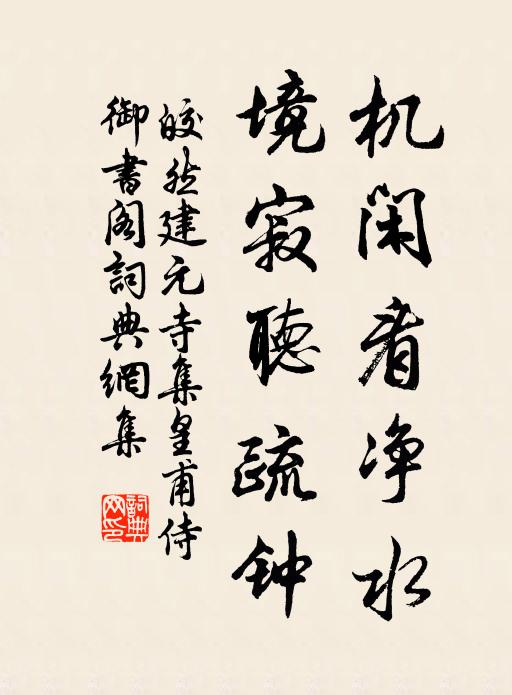 机闲看净水
境寂聽疏钟
皎然建元寺集皇甫侍
御書阁詞典網集
詞典
网印